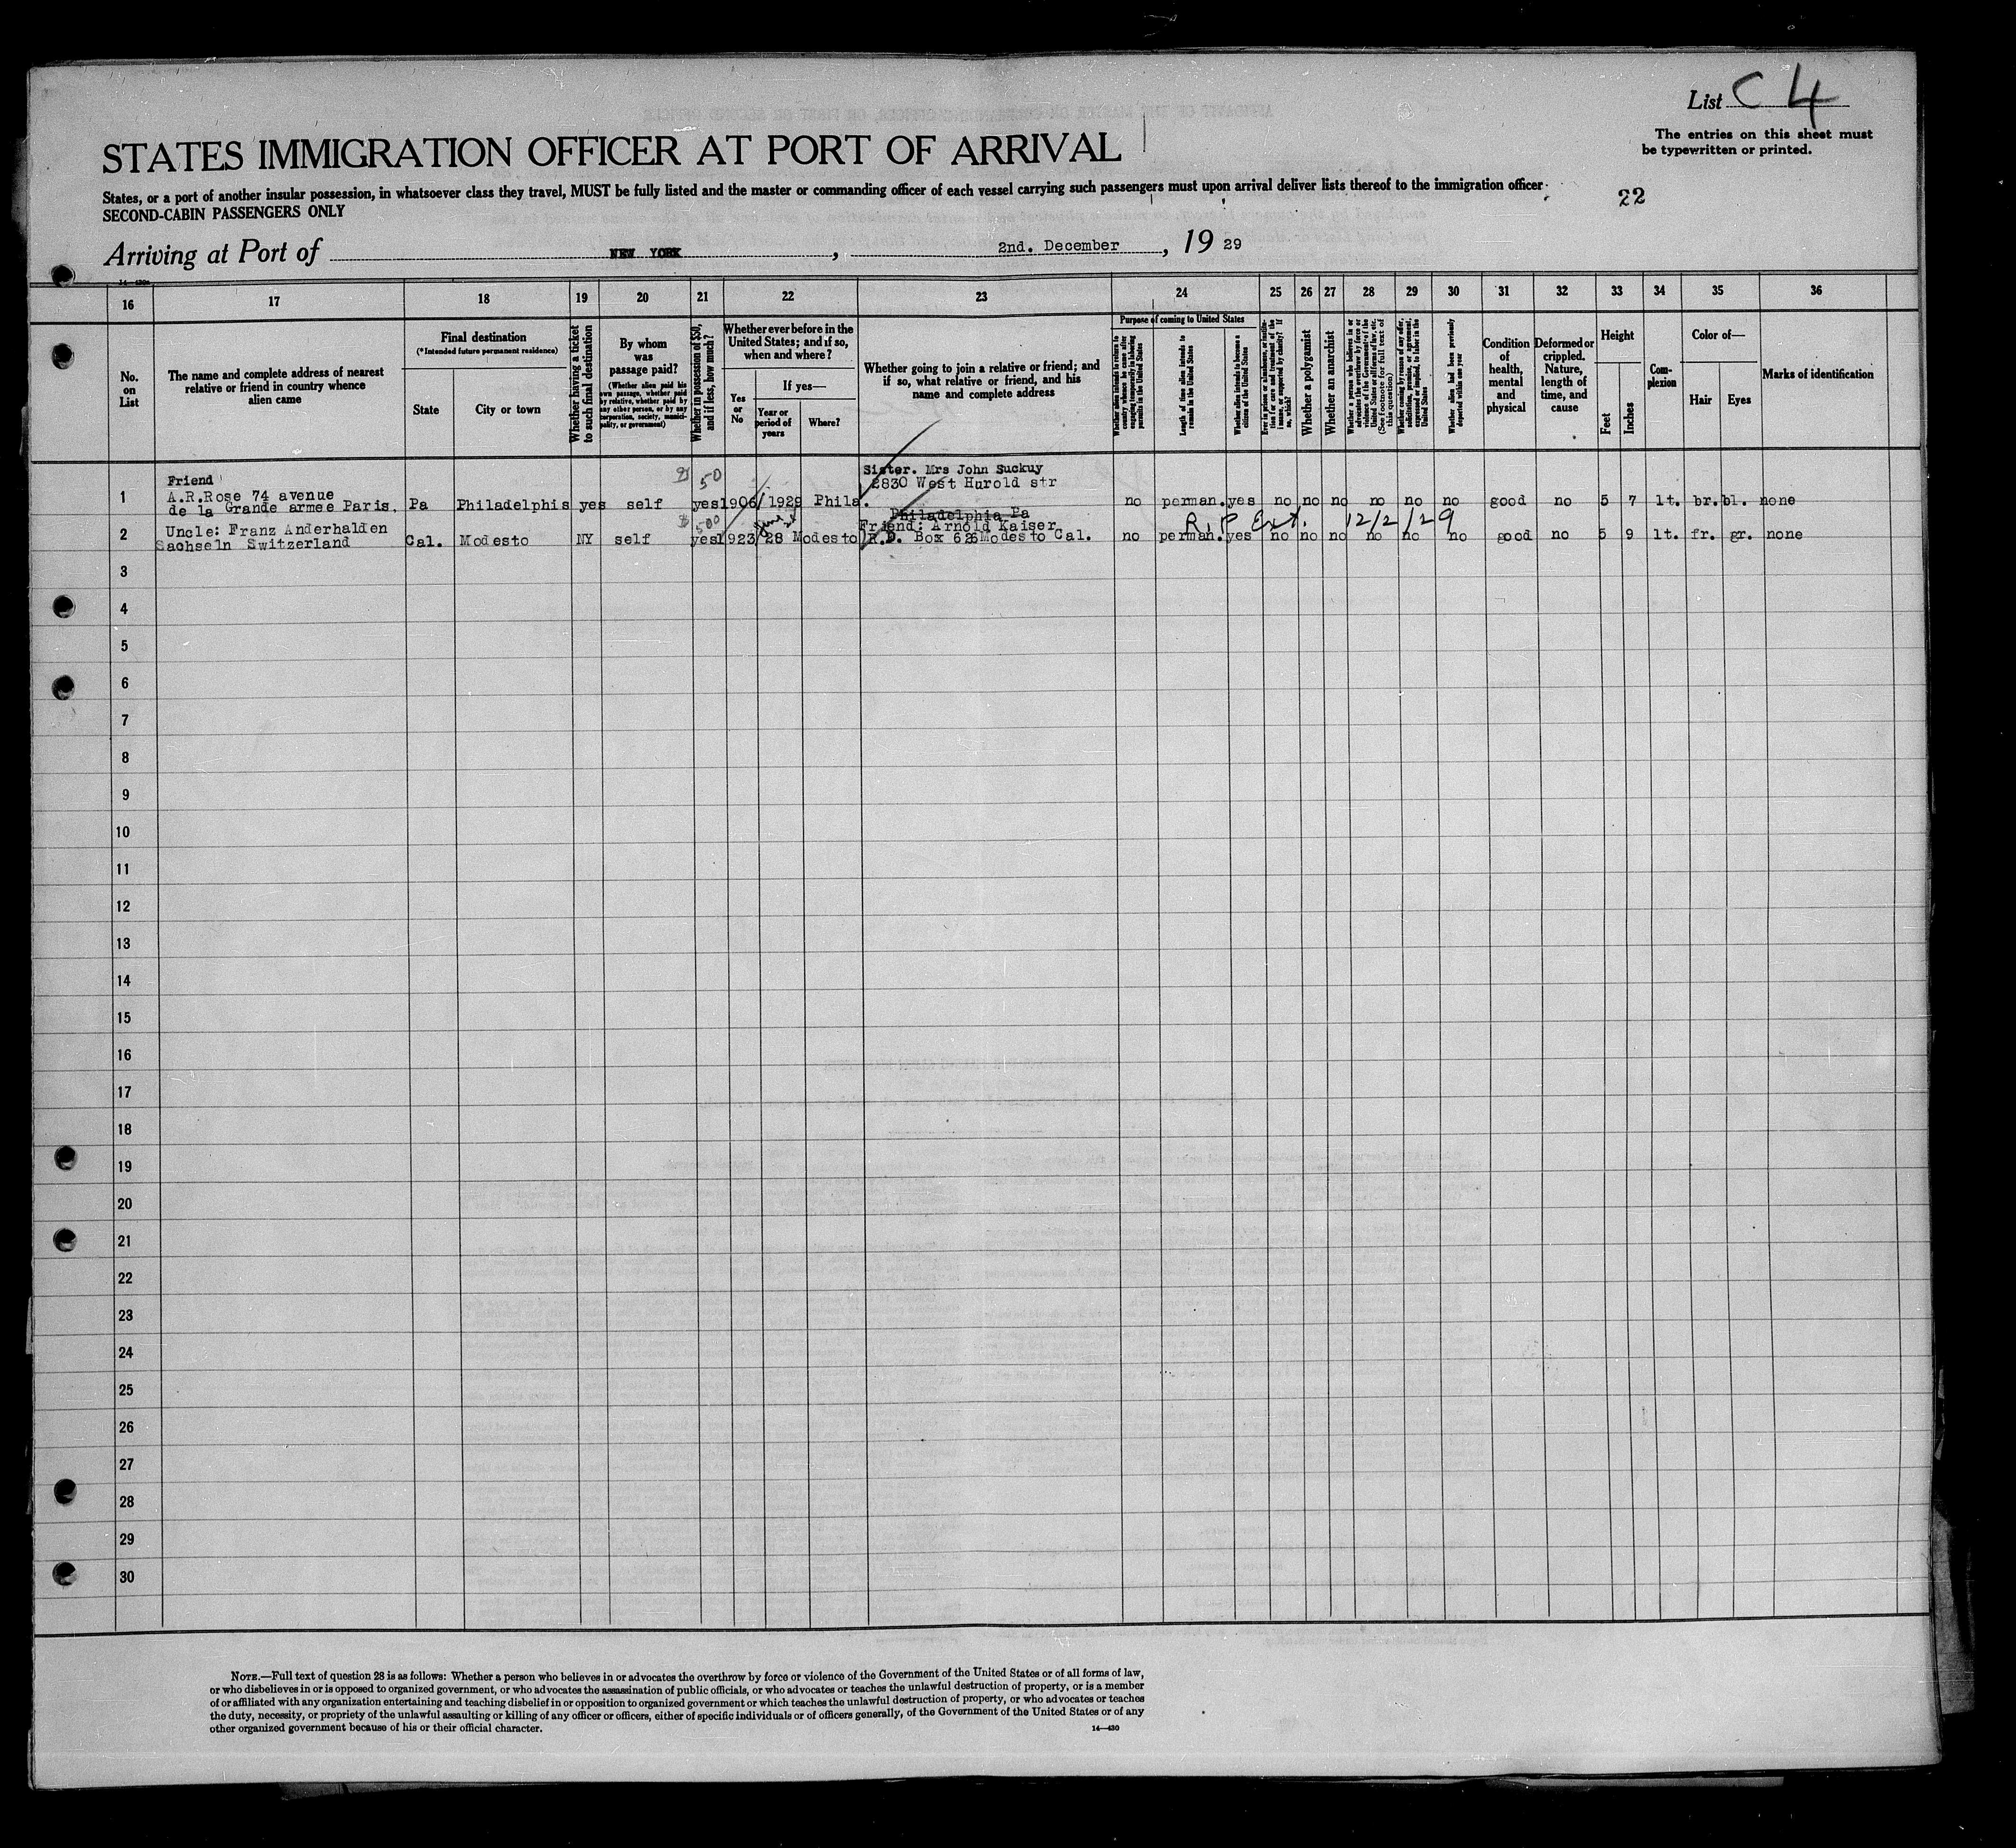 List C 4
The entries on this sheet must
be typewritten or printed.
STATES IMMIGRATION OFFICER AT PORT OF ARRIVAL
States, or a port of another insular possession, in whatsoever class they travel, MUST be fully listed and the master or commanding officer of each vessel carrying such passengers must upon arrival deliver lists thereof to the immigration officer
SECOND-CABIN PASSENGERS ONLY
22
Arriving at Port of NEW YORK, 2nd. December, 19 29
16 17 18 19 20 21 22 23 24 25 26 27 28 29 30 31 32 33 34 35 36
No. on List
The name and complete address of nearest relative or friend in country whence alien came
Final destination
(*Intended future permanent residence)
State
City or town
Whether having a ticket to such final destination
By whom was passage paid?
(Whether alien paid his own passage, whether paid by relative, whether paid by any other person, or by any corporation, society, municipality, or government)
Whether in possession of $50, and if less, how much?
Whether ever before in the United States; and if so, when and where?
Yes or No
If yes—
Year or period of years
Where?
Whether going to join a relative or friend; and if so, what relative or friend, and his name and complete address
Purpose of coming to United States
Whether alien intends to return to country whence he came after engaging temporarily in laboring pursuits in the United States
Length of time alien intends to remain in the United States
Whether alien intends to become a citizen of the United States
Ever in prison or almshouse, or institution for care and treatment of the insane, or supported by charity? If so, which?
Whether a polygamist
Whether an anarchist
Whether a person who believes in or advocates the overthrow by force or violence of the Government of the United States or all forms of law, etc. (See footnote for full text of this question)
Whether coming by reason of any offer, solicitation, promise, or agreement, expressed or implied, to labor in the United States
Whether alien had been previously deported within one year
Condition of health, mental and physical
Deformed or crippled. Nature, length of time, and cause
Height
Feet
Inches
Complexion
Color of—
Hair
Eyes
Marks of identification
Friend
Sister. Mrs John Suckuy
2830 West Hurold str
1 A.R.Rose 74 avenue
de la Grande armee Paris. Pa Philadelphis yes self $ 50 yes 1906/1929 Phila. no perman. yes no no no no no no good no 5 7 lt. br. bl. none
Philadelphia Pa
R.P Ext. 12/2/29
2 Uncle: Franz Anderhalden
Friend: Arnold Kaiser
Sachseln Switzerland Cal. Modesto NY self $ 500 yes 1923/28 Modesto R.D. Box 626 Modesto Cal. no perman. yes no no no no no no good no 5 9 lt. fr. gr. none
3
4
5
6
7
8
9
10
11
12
13
14
15
16
17
18
19
20
21
22
23
24
25
26
27
28
29
30
NOTE.—Full text of question 28 is as follows: Whether a person who believes in or advocates the overthrow by force or violence of the Government of the United States or of all forms of law,
or who disbelieves in or is opposed to organized government, or who advocates the assassination of public officials, or who advocates or teaches the unlawful destruction of property, or is a member
of or affiliated with any organization entertaining and teaching disbelief in or opposition to organized government or which teaches the unlawful destruction of property, or who advocates or teaches
the duty, necessity, or propriety of the unlawful assaulting or killing of any officer or officers, either of specific individuals or of officers generally, of the Government of the United States or of any
other organized government because of his or their official character.
14—430